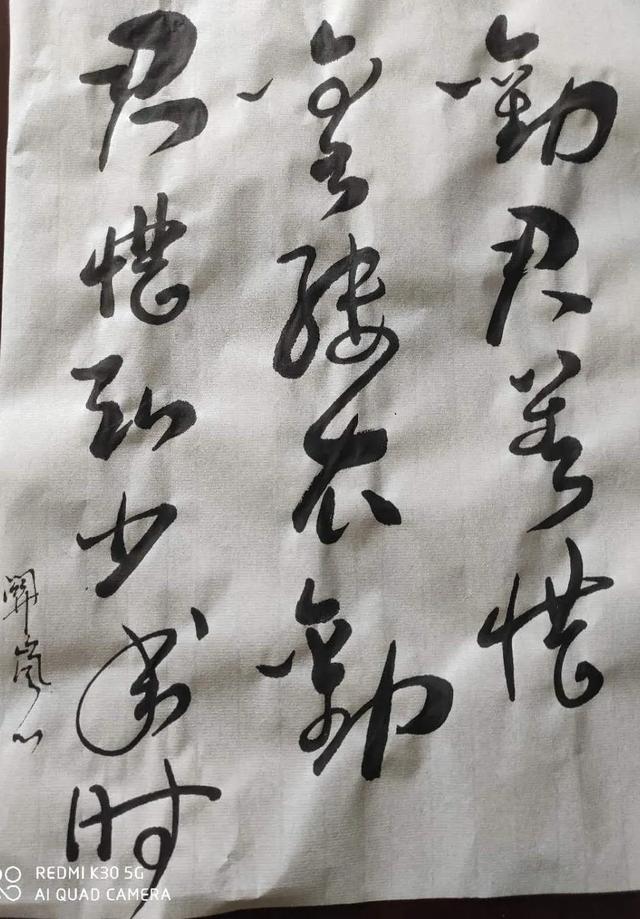 勸君莫惜
金縷衣勸
君惜取少年时
REDMI K30 5G
AI QUAD CAMERA